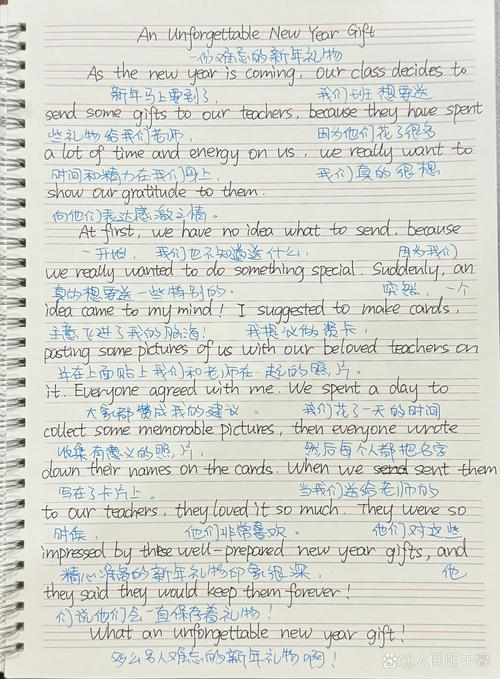 An Unforgettable New Year Gift
一份难忘的新年礼物
As the new year is coming, our class decides to
新年马上要到了, 我们班想要送
send some gifts to our teachers, because they have spent
些礼物给我们老师, 因为他们花了很多
a lot of time and energy on us, we really want to
时间和精力在我们身上, 我们真的很想
show our gratitude to them.
向他们表达感激之情。
At first, we have no idea what to send. because
一开始, 我们也不知道送什么, 因为我们
we really wanted to do something special. Suddenly, an
真的想要送一些特别的。 突然, 一个
idea came to my mind! I suggested to make cards,
主意飞进了我的脑海! 我提议做贺卡,
posting some pictures of us with our beloved teachers on
并在上面贴上我们和老师在一起的照片。
it. Everyone agreed with me. We spent a day to
大家都赞成我的建议。 我们花了一天的时间
collect some memorable pictures, then everyone wrote
收集有意义的照片, 然后每个人都把名字
down their names on the cards. When we sent them
写在了卡片上。 当我们送给老师的
to our teachers, they loved it so much. They were so
时候, 他们非常喜欢。 他们对这些
impressed by these well-prepared new year gifts, and
精心准备的新年礼物印象很深, 他
they said they would keep them forever!
们说他们会一直保存着礼物!
What an unforgettable new year gift!
多么另人难忘的新年礼物啊!